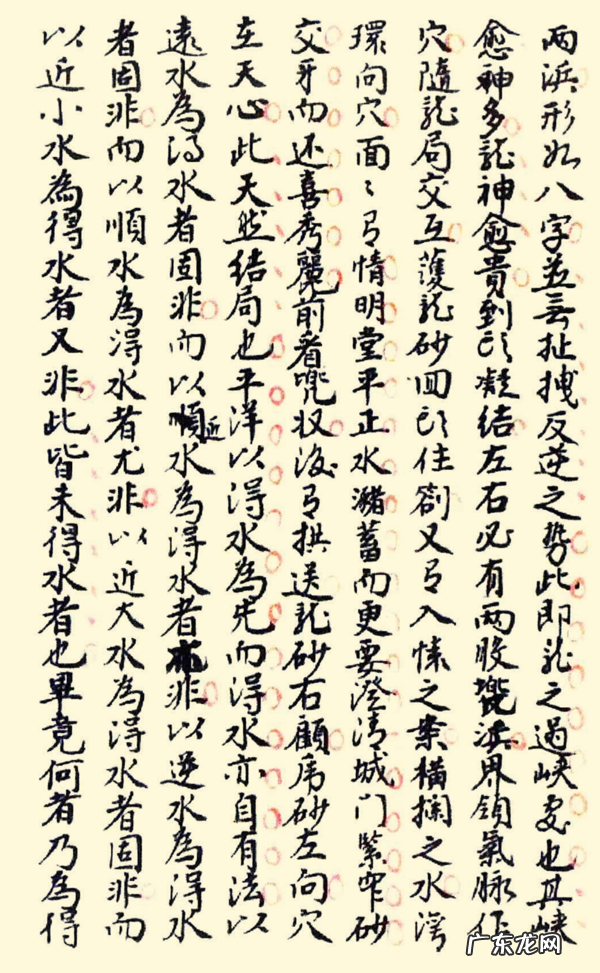 两浜形如八字並無扯拽反逆之勢此即龍之過峽處也其峽
愈神多龍神愈貴到頭凝結左右必有兩股兠浜界領氣脉作
穴隨龍局交互護龍砂回頭住劄又有入懐之案橫攔之水灣
環向穴面〻有情明堂平正水瀦蓄而更要澄清城门緊窄砂
交牙而还喜秀麗前看兠状後有拱送龍砂右顧虎砂左向穴
在天心此天然结局也平洋以得水為先而得水亦自有法以
遠水為得水者固非而以近水為得水者非以逆水為得水
者固非而以順水為得水者尤非以近大水為得水者固非而
以近小水為得水者又非此皆未得水者也畢竟何者乃為得
广东龙网